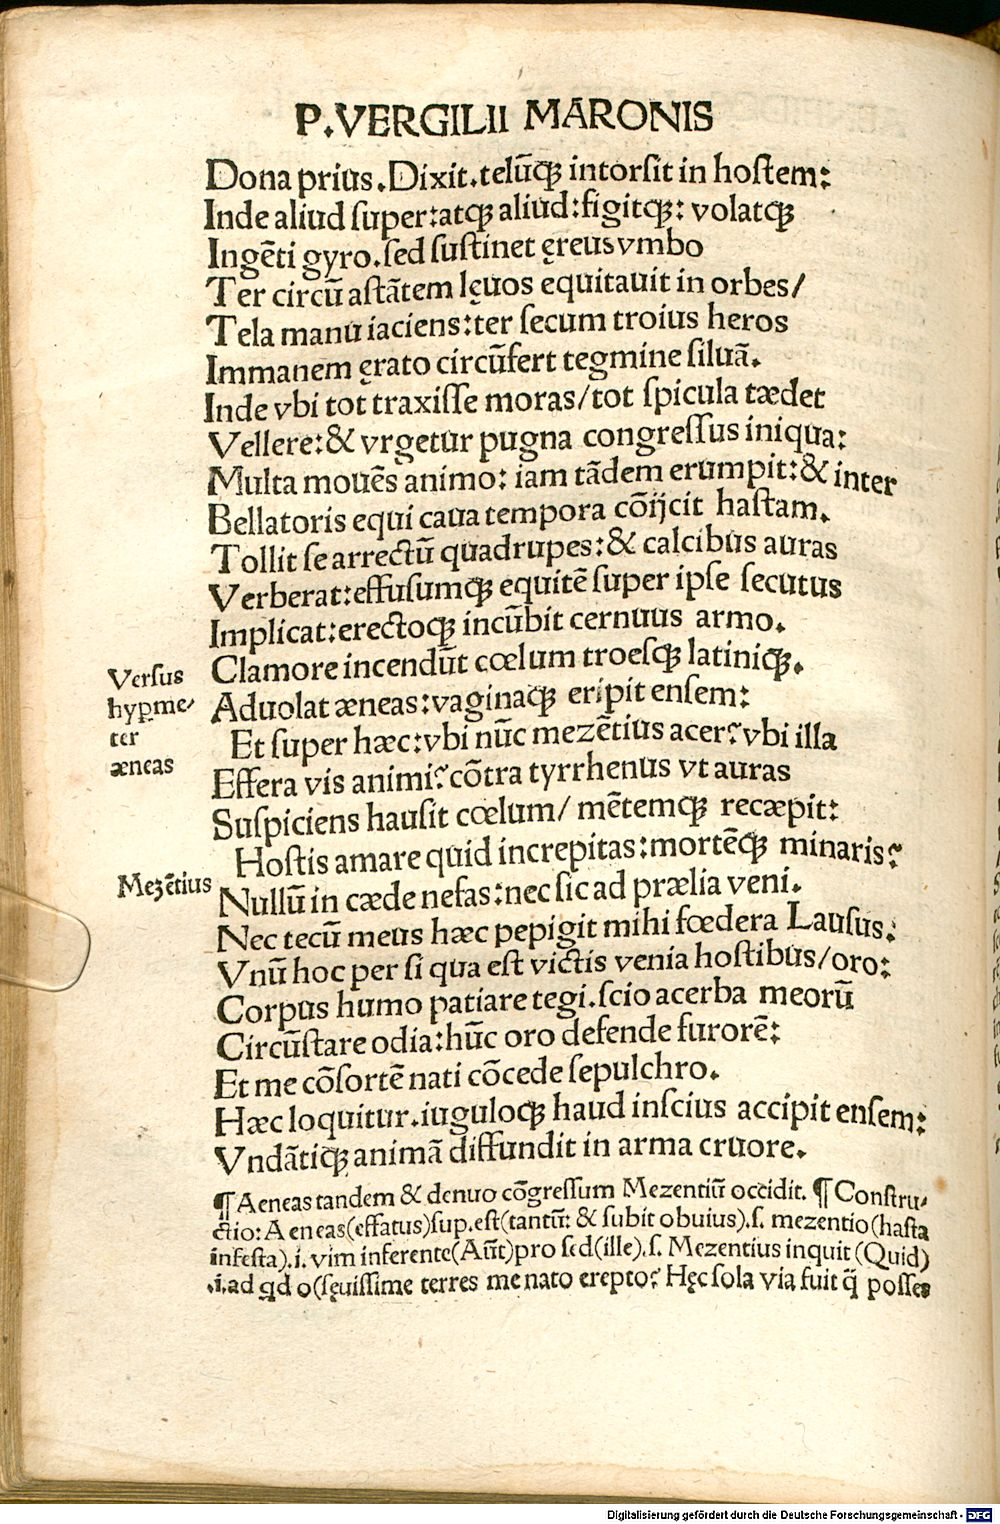 P.VERGILII MARONIS
Dona prius.Dixit.telũqꝫ intorsit in hostem:
Inde aliud super:atqꝫ aliud:figitqꝫ: volatqꝫ
Ingẽti gyro.sed sustinet ęreus vmbo
Ter circũ astãtem lęuos equitauit in orbes/
Tela manu iaciens:ter secum troius heros
Immanem ęrato circũfert tegmine siluã.
Inde vbi tot traxisse moras/tot spicula tædet
Vellere:& vrgetur pugna congressus iniqua:
Multa mouẽs animo: iam tãdem erumpit:& inter
Bellatoris equi caua tempora cõijcit hastam.
Tollit se arrectũ quadrupes:& calcibus auras
Verberat:effusumqꝫ equitẽ super ipse secutus
Implicat:erectoqꝫ incũbit cernuus armo.
Clamore incendũt cœlum troesqꝫ latiniqꝫ.
Versus hyꝑme/ter
Aduolat æneas:vaginaqꝫ eripit ensem:
æneas
Et super hæc:vbi nũc mezẽtius acer? vbi illa
Effera vis animi? cõtra tyrrhenus vt auras
Suspiciens hausit cœlum/ mẽtemqꝫ recæpit:
Mezẽtius
Hostis amare quid increpitas:mortẽqꝫ minaris?
Nullũ in cæde nefas:nec sic ad prælia veni.
Nec tecũ meus hæc pepigit mihi fœdera Lausus:
Vnũ hoc per si qua est victis venia hostibus/oro:
Corpus humo patiare tegi.scio acerba meorũ
Circũstare odia:hũc oro defende furorẽ:
Et me cõsortẽ nati cõcede sepulchro.
Hæc loquitur.iuguloqꝫ haud inscius accipit ensem:
Vndãtiqꝫ animã diffundit in arma cruore.
¶ Aeneas tandem & denuo cõgressum Mezentiũ occidit. ¶ Constru/
ctio: Aeneas(effatus)sup.est(tantũ: & subit obuius).s. mezentio(hasta
infesta).i. vim inferente(Aũt)pro sed(ille).s. Mezentius inquit (Quid)
.i.ad qd o(sęuissime terres me nato erepto? Hęc sola via fuit q̃ posses
Digitalisierung gefördert durch die Deutsche Forschungsgemeinschaft - DFG